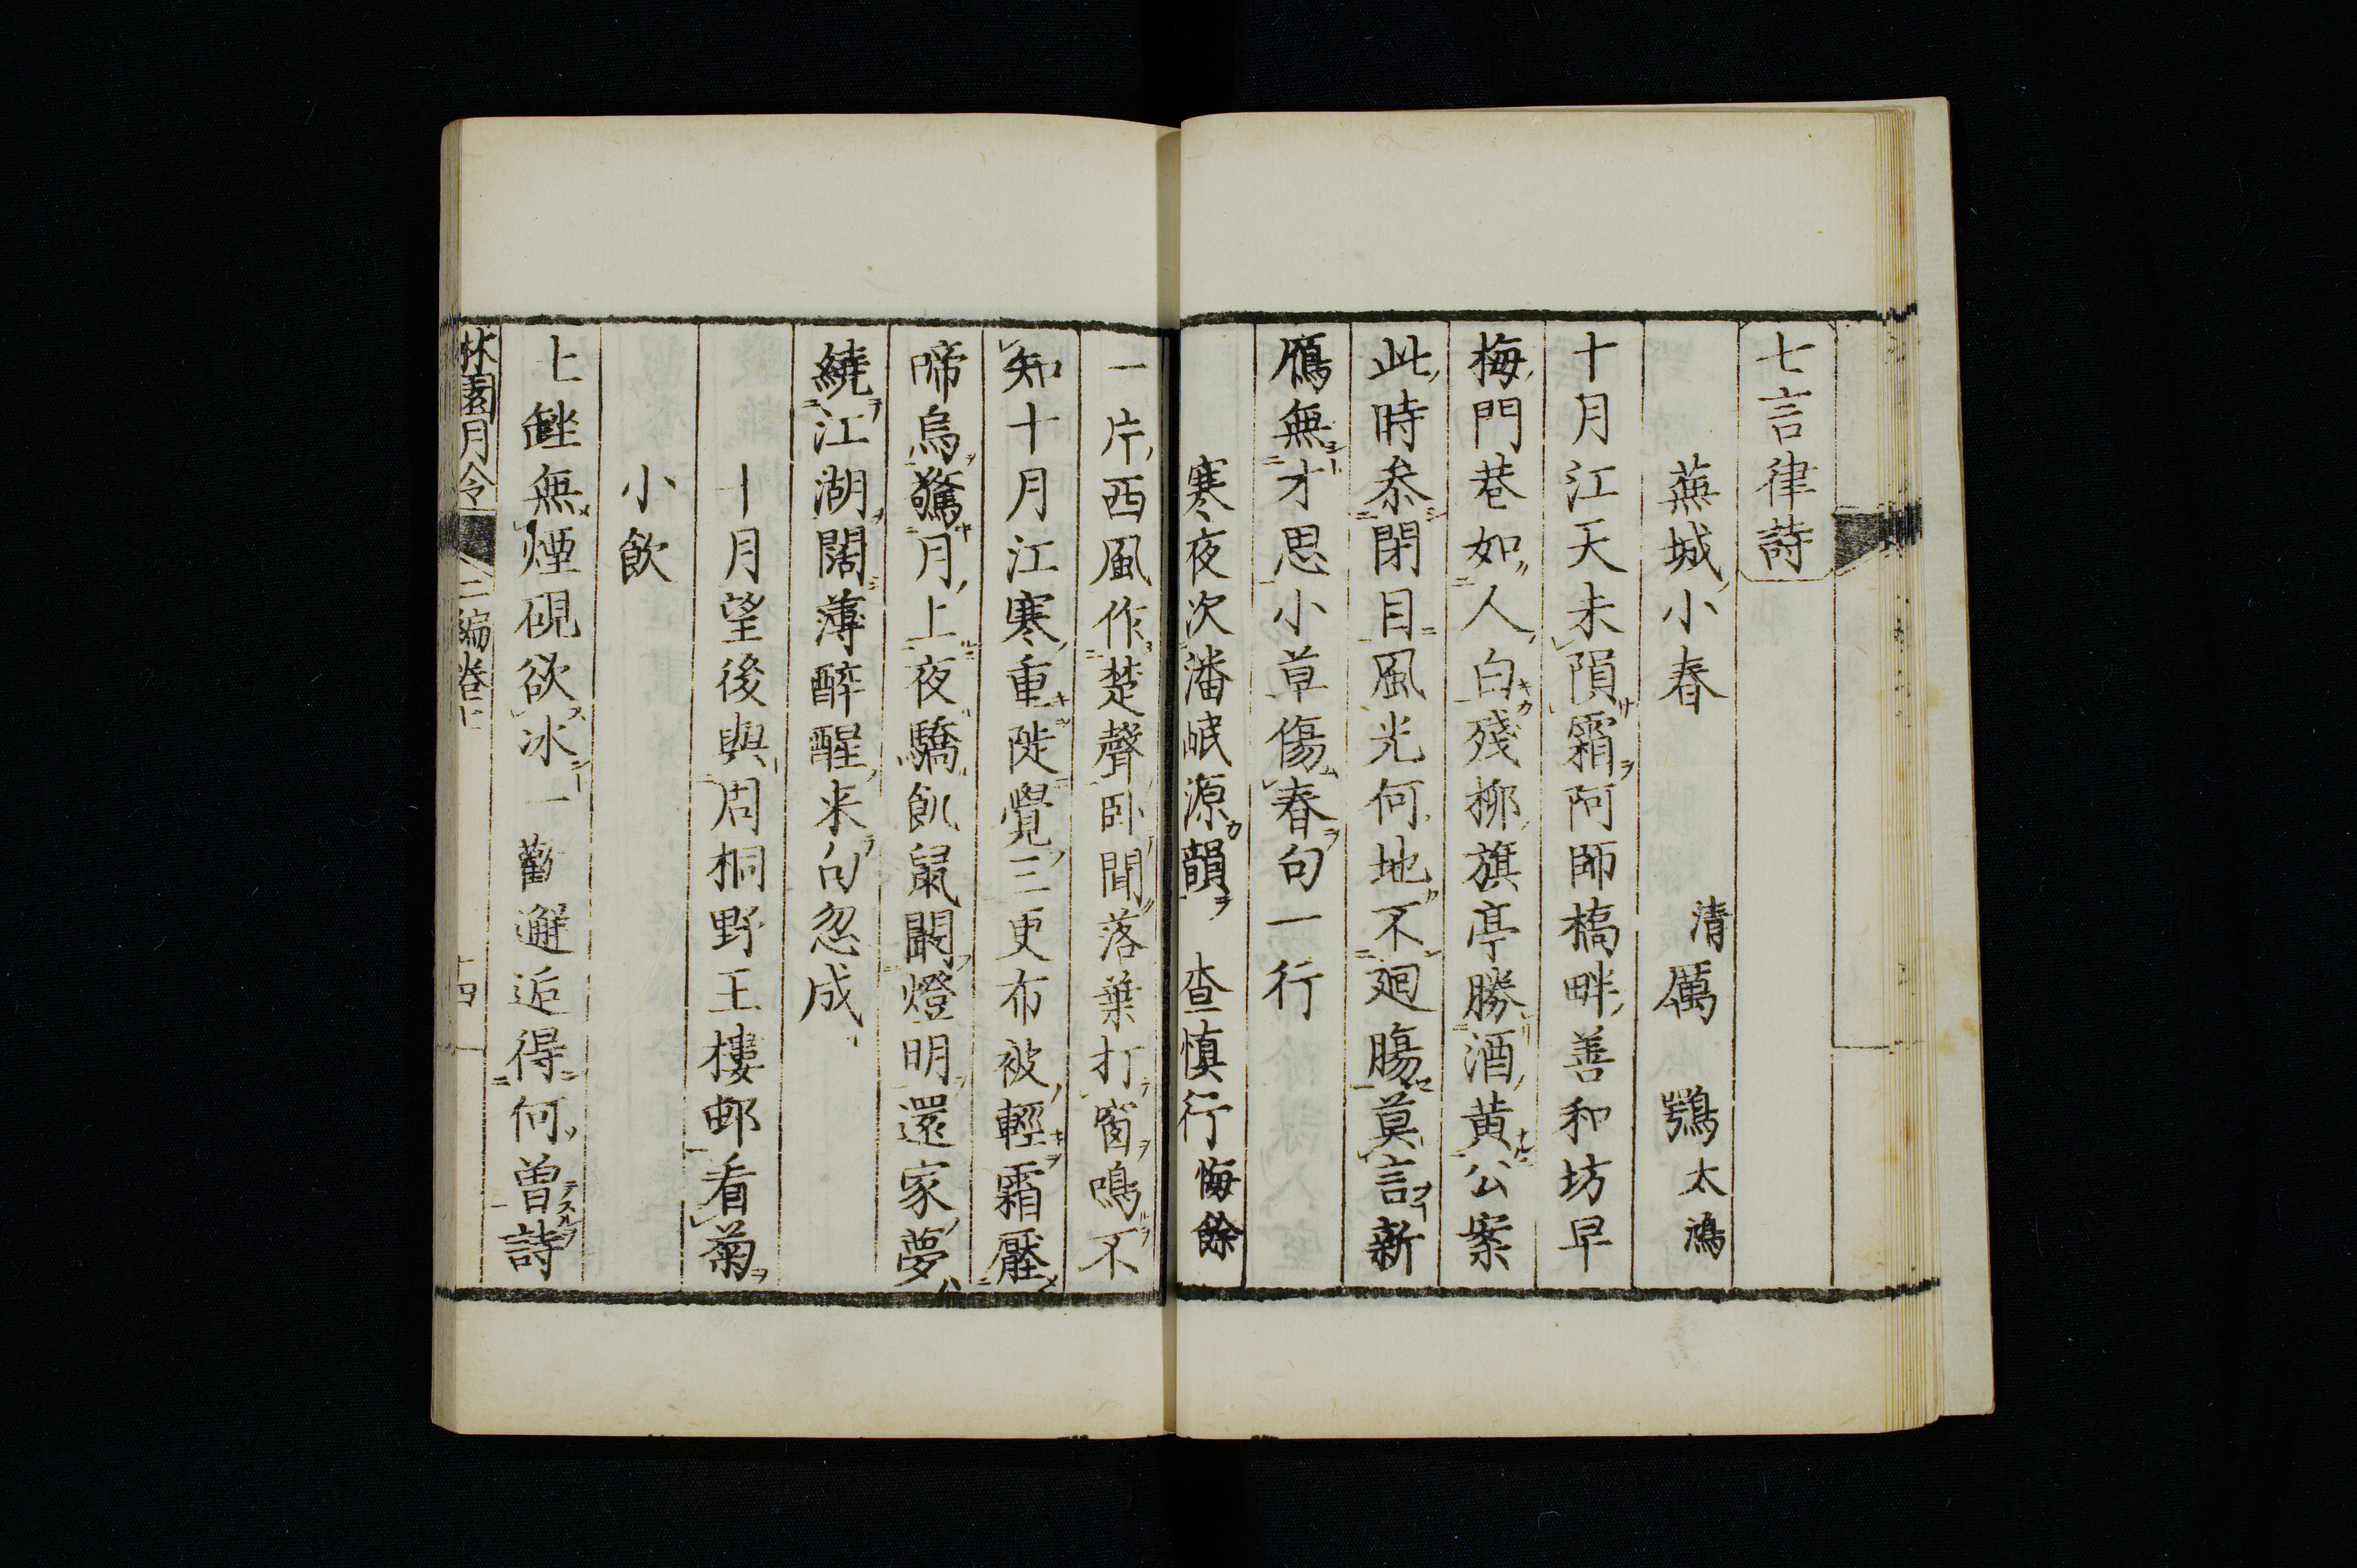 七言律詩
蕪城小春 清 厲鶚太鴻
十月江天未隕霜阿師橋畔善和坊早
梅門巷如人白殘柳旗亭勝酒黄公案
此時叅閉目風光何地不廻腸莫言新
鴈無才思小草傷春句一行
寒夜次潘岷源韻 查慎行悔餘
一片西風作楚聲卧聞落葉打窗鳴不
知十月江寒重陡覺三更布被輕霜壓
啼烏驚月上夜驕飢鼠鬭燈明還家夢
繞江湖闊薄醉醒来句忽成
十月望後與周桐野王樓邨看菊
小飲
土銼無煙硯欲冰一觴邂逅得何曽詩
林園月令 二編卷下 十四